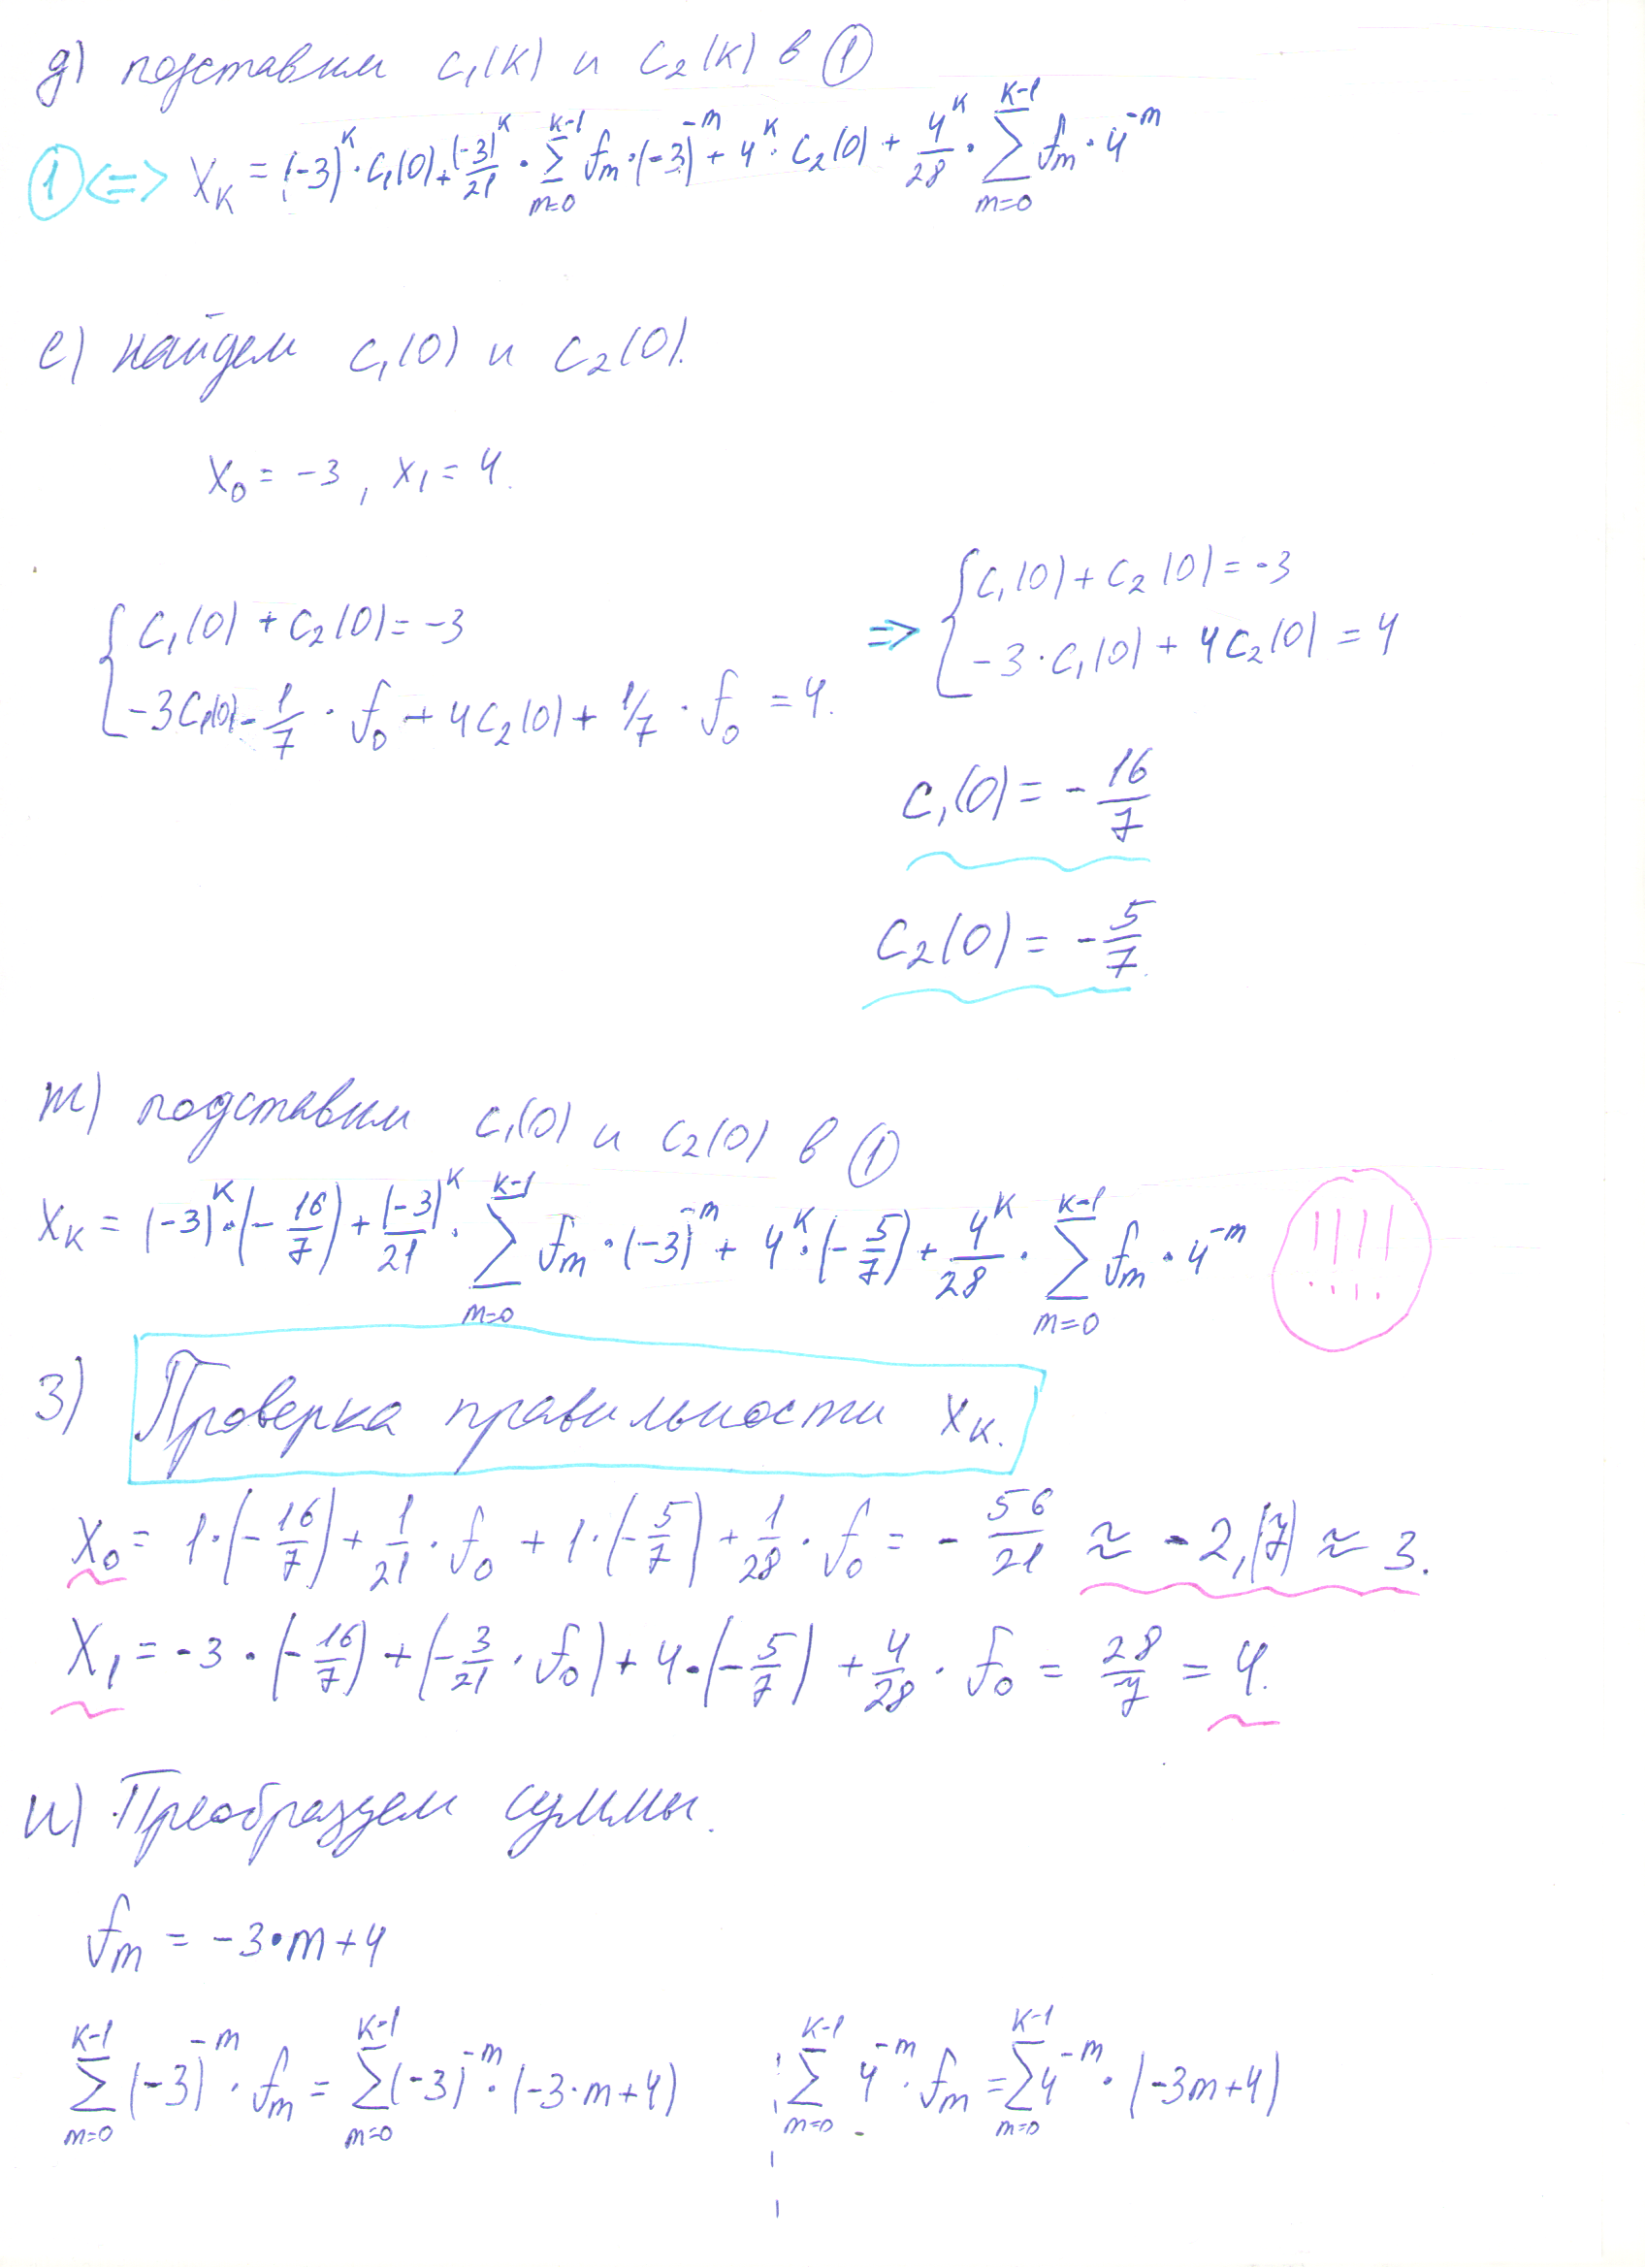 д) подставим C₁(K) и C₂(K) в ①
① <=> X_K = (-3)^K · C₁(0) + (-3)^K/21 · ∑_{m=0}^{K-1} f_m · (-3)^{-m} + 4^K · C₂(0) + 4^K/28 · ∑_{m=0}^{K-1} f_m · 4^{-m}
е) найдем C₁(0) и C₂(0).
X₀ = -3, X₁ = 4.
{ C₁(0) + C₂(0) = -3
{ -3C₁(0) - 1/7 · f₀ + 4C₂(0) + 1/7 · f₀ = 4.
=> { C₁(0) + C₂(0) = -3
{ -3 · C₁(0) + 4C₂(0) = 4
C₁(0) = - 16/7
C₂(0) = - 5/7.
ж) подставим C₁(0) и C₂(0) в ①
X_K = (-3)^K · (- 16/7) + (-3)^K/21 · ∑_{m=0}^{K-1} f_m · (-3)^{-m} + 4^K · (- 5/7) + 4^K/28 · ∑_{m=0}^{K-1} f_m · 4^{-m} !!!!
З) Проверка правильности X_K.
X₀ = 1 · (- 16/7) + 1/21 · f₀ + 1 · (- 5/7) + 1/28 · f₀ = - 56/21 ≈ -2,(7) ≈ 3.
X₁ = -3 · (- 16/7) + (- 3/21 · f₀) + 4 · (- 5/7) + 4/28 · f₀ = 28/7 = 4.
и) Преобразуем суммы.
f_m = -3 · m + 4
∑_{m=0}^{K-1} (-3)^{-m} · f_m = ∑_{m=0}^{K-1} (-3)^{-m} · (-3 · m + 4)
∑_{m=0}^{K-1} 4^{-m} · f_m = ∑_{m=0}^{K-1} 4^{-m} · (-3m + 4)